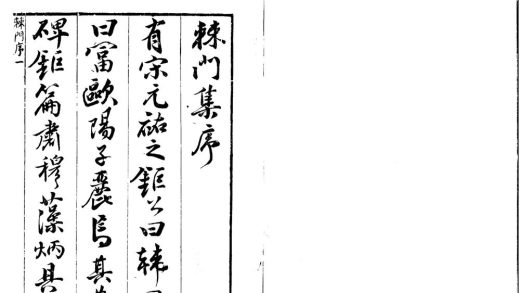 棘門集序
有宋元祐之鉅公曰韓
曰富歐陽子麗焉其
碑鉅篇肅穆藻炳具
棘門序一